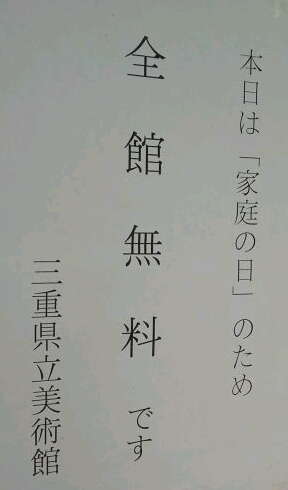 本日は「家庭の日」のため
全館無料です
三重県立美術館